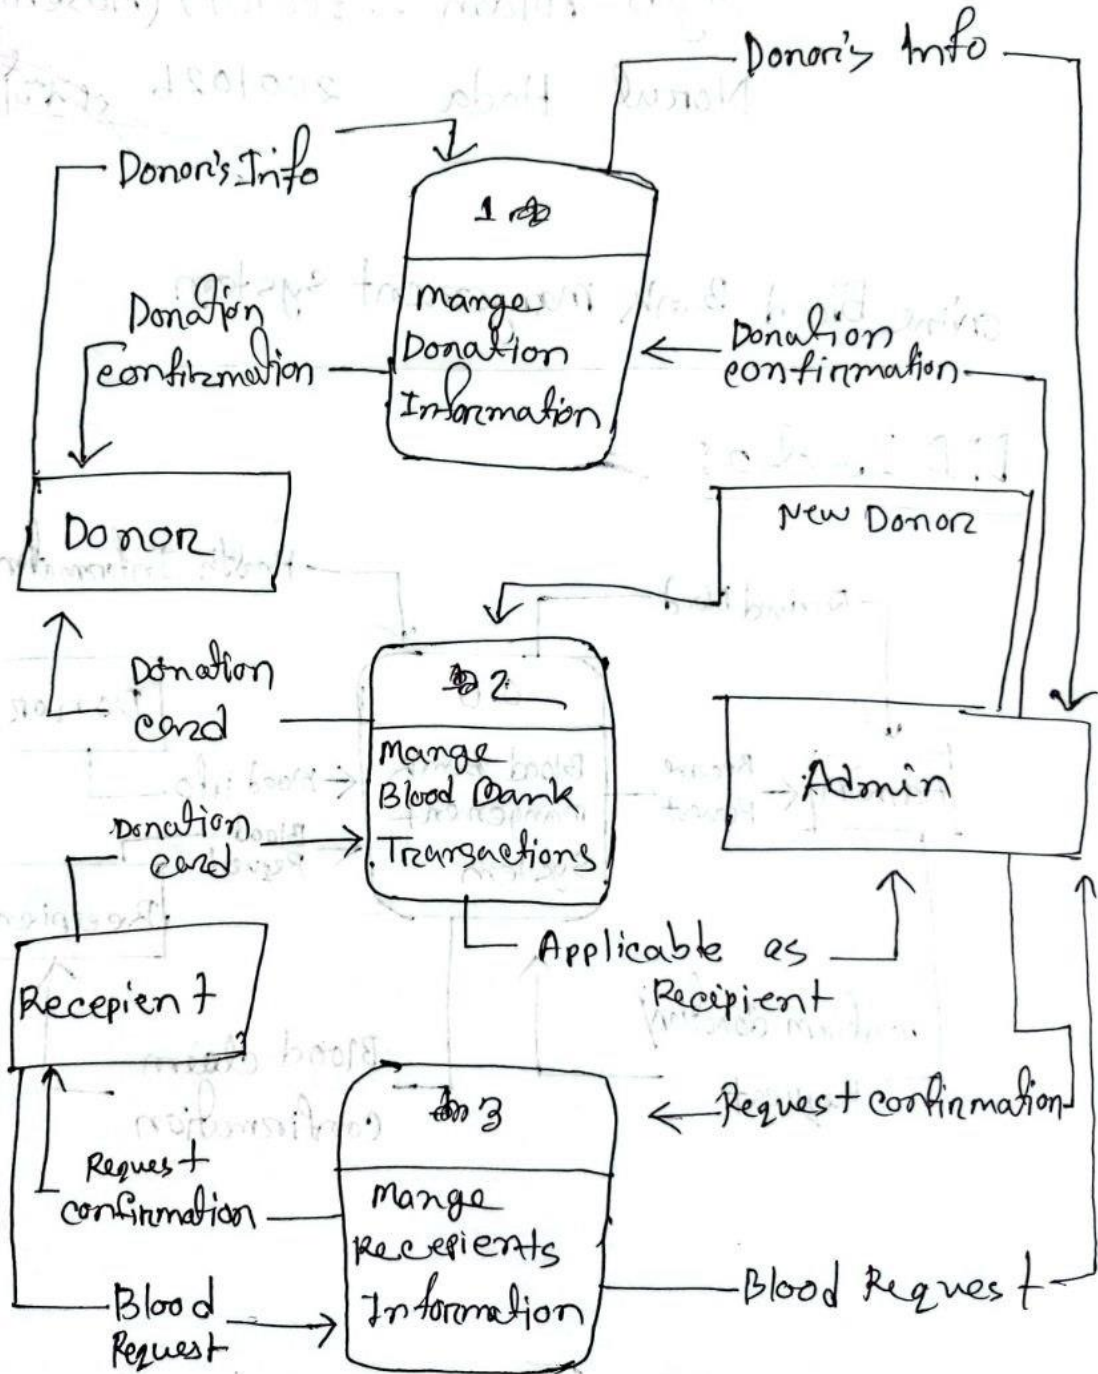 Donor's Info
Donor's Info
1
Mange
Donation
Information
Donation
confirmation
Donation
confirmation
Donor
New Donor
Donation
card
2
Mange
Blood Bank
Transactions
Admin
Donation
card
Applicable as
Recipient
Recepient
3
Mange
Recepients
Information
Request confirmation
Request
confirmation
Blood
Request
Blood Request